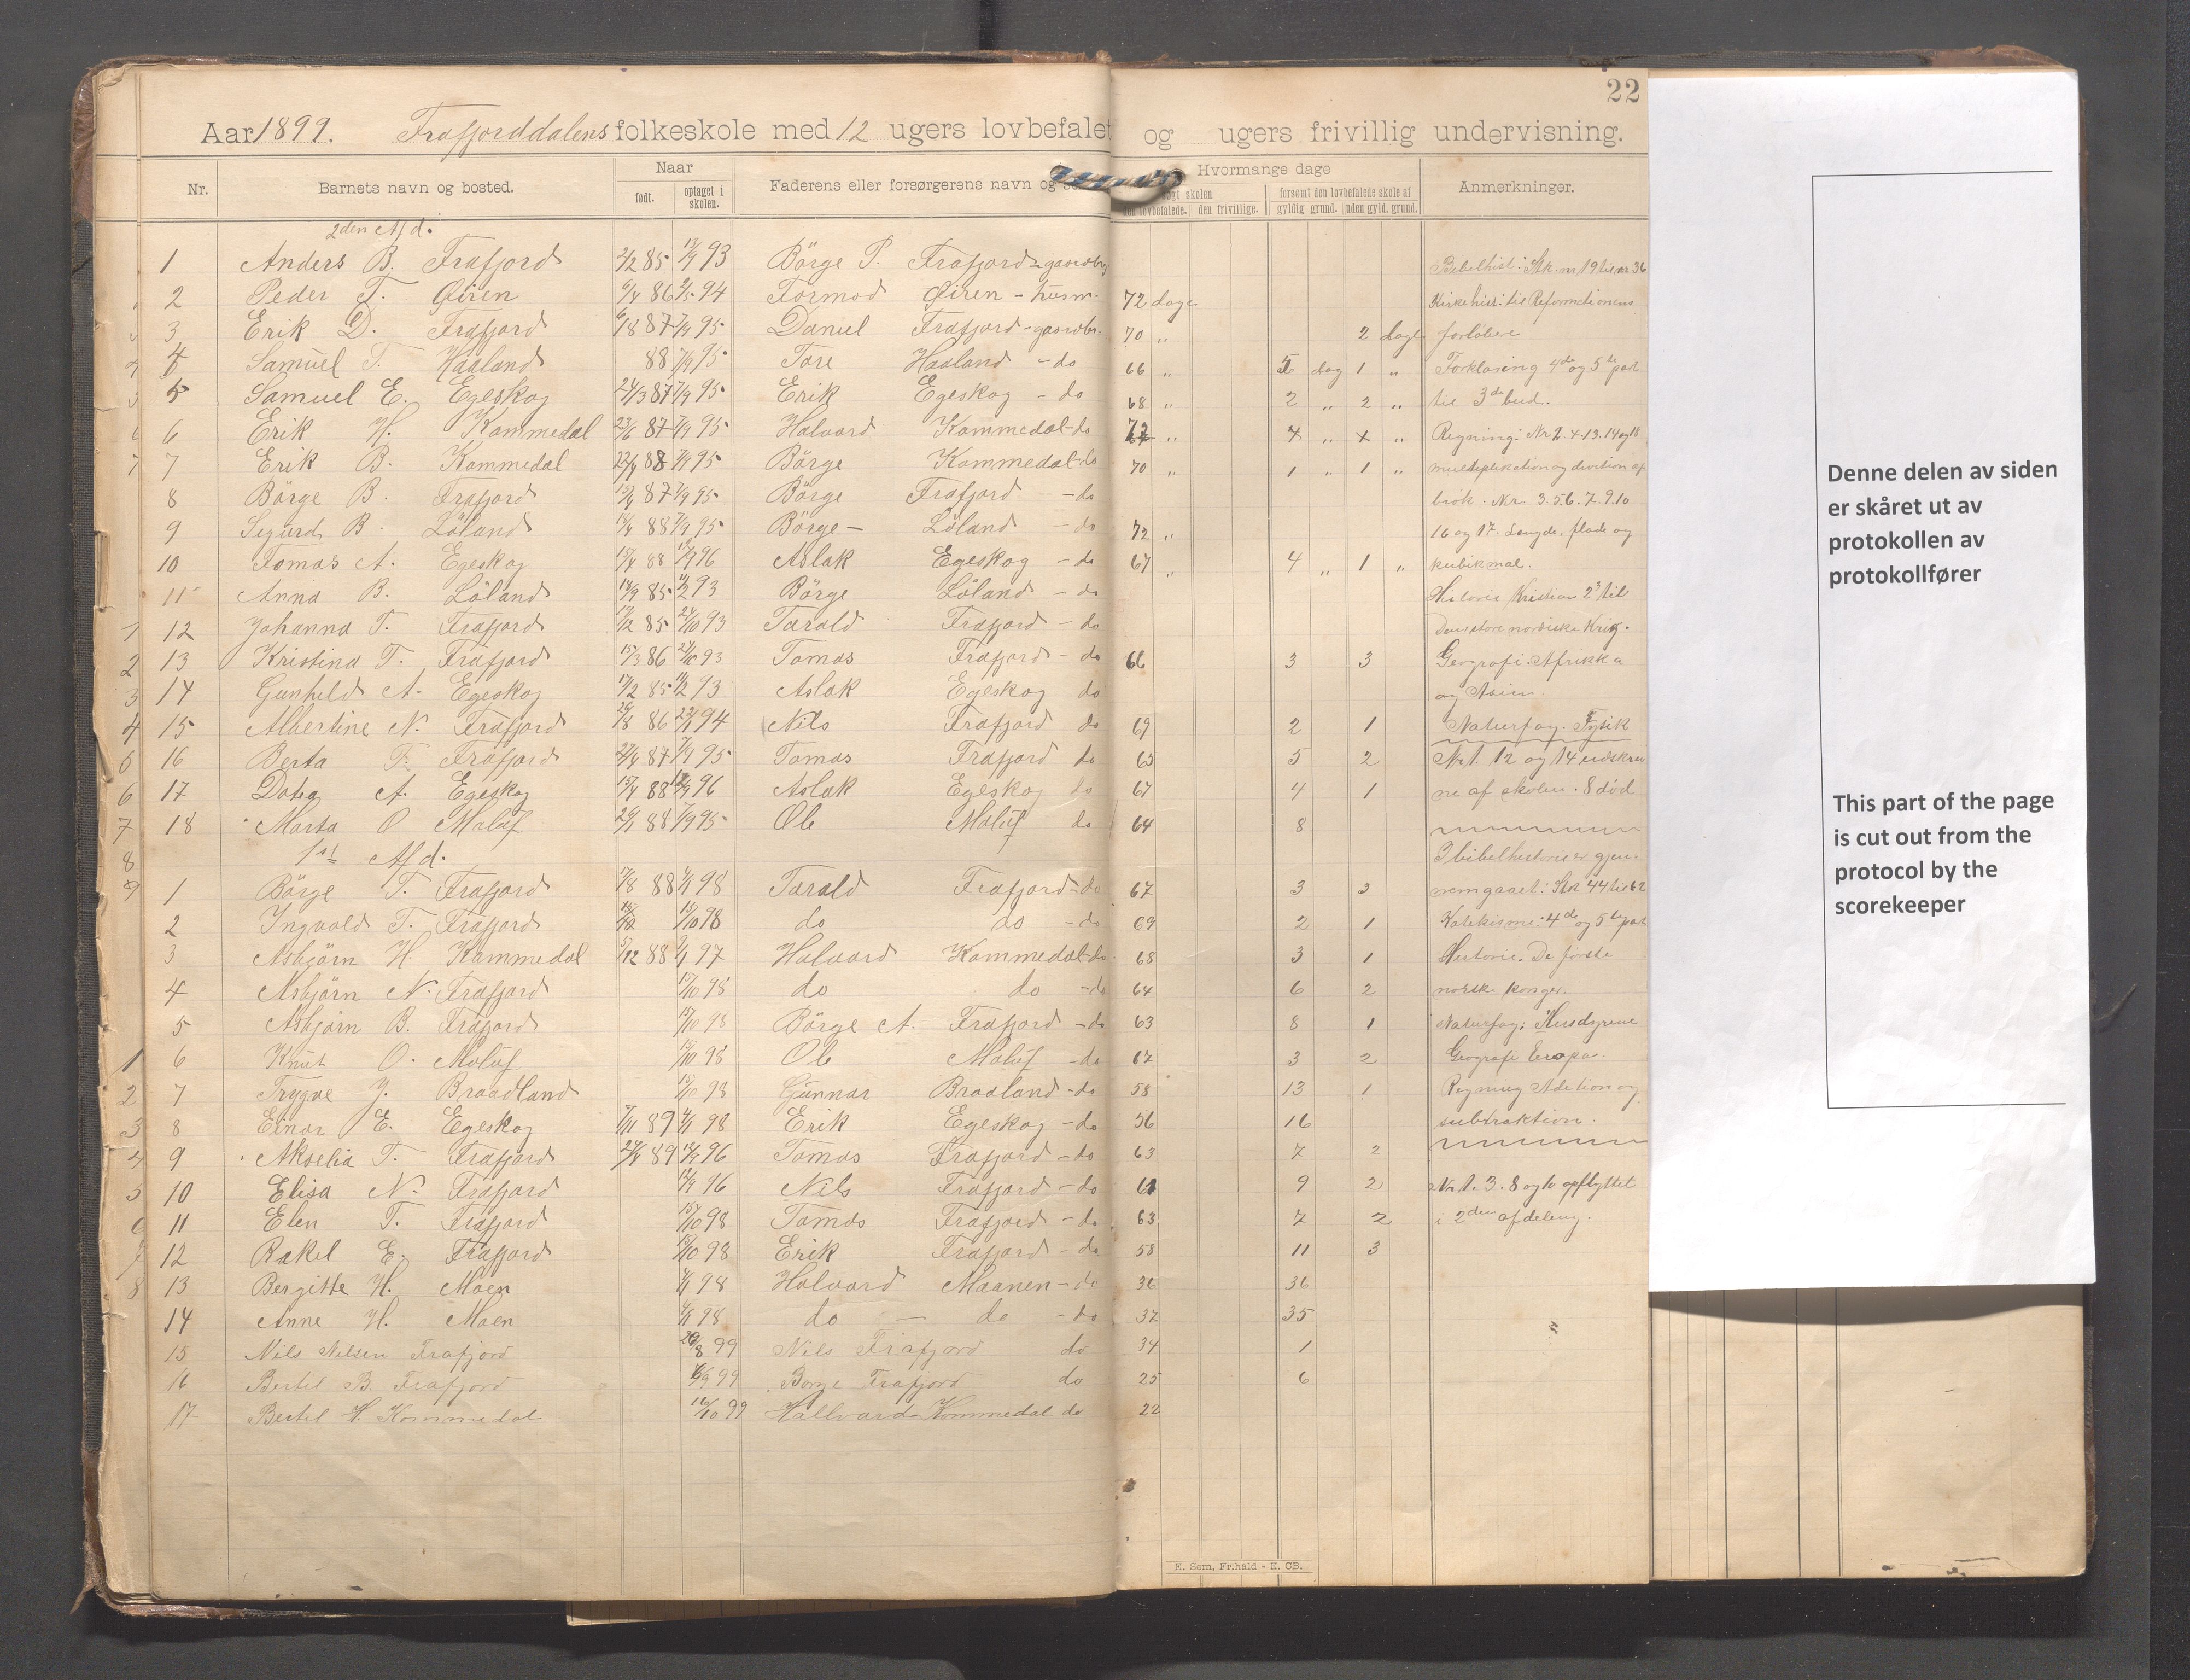 22
Aar 1899. Frafjorddalens folkeskole med 12 ugers lovbefalet og ugers frivillig undervisning.
Nr. Barnets navn og bosted. Naar født. optaget i skolen. Faderens eller forsørgerens navn og Hvormange dage søgt skolen den lovbefalede. den frivillige. forsømt den lovbefalede skole af gyldig grund. uden gyld. grund. Anmerkninger.
2den Afd.
1 Anders B. Frafjord 2/2 85 13/9 93 Börge P. Frafjord - gaardbr Bibelhist: Stk. nr 19 til nr 36
2 Peder T. Øiren 6/4 86 2/5 94 Tormod Øiren - husm. 72 dage Kirkehist: til Reformationens
3 Erik D. Frafjord 6/8 87 7/9 95 Daniel Frafjord - gaardbr. 70 " 2 dage forløbere
4 Samuel T. Haaland 88 7/9 95 Tore Haaland - do 66 " 5 dag 1 " Forklaring 4de og 5te part
5 Samuel E. Egeskog 24/3 87 7/9 95 Erik Egeskog - do 68 " 2 " 2 " til 3de bud.
6 Erik H. Kommedal 23/6 87 7/9 95 Halvard Kommedal - do 72 " Regning: Nr 2. 4. 13. 14 og 18
7 Erik B. Kommedal 22/4 88 7/9 95 Börge Kommedal - do 70 " 1 " 1 " multiplikation og division af
8 Börge B. Frafjord 13/4 87 7/9 95 Börge Frafjord - do brök. Nr. 3. 5. 6. 7. 9. 10
9 Sigurd B. Löland 88 7/9 95 Börge - Löland - do 72 " 16 og 17. Længde, flade og
10 Tomas A. Egeskog 15/4 88 96 Aslak Egeskog - do 67 " 4 " 1 " kubikmal.
11 Anna B. Löland 18/9 85 93 Börge Löland - do Historie Kristian 2 til
12 Johanna T. Frafjord 85 24/10 93 Tarald Frafjord - do Den store nordiske Krig.
13 Kristina T. Frafjord 15/3 86 27/10 93 Tomas Frafjord - do 66 3 3 Geografi. Afrikka
14 Gunhild A. Egeskog 17/2 85 93 Aslak Egeskog do og Asien
15 Albertine N. Frafjord 26/8 86 94 Nils Frafjord do 69 2 1 Naturfag. Fysik
16 Berta T. Frafjord 27/4 87 7/9 95 Tomas Frafjord do 65 5 2 Nr 1. 12 og 14 udskrev
17 A. Egeskog 15/4 88 96 Aslak Egeskog do 67 4 1 ne af skolen. 8 død
18 Marta O Maluf 26/1 88 7/9 95 Ole Maluf do 64 8
1st Afd. I bibelhistorie er gjen-
1 Börge T. Frafjord 88 98 Tarald Frafjord - do 67 3 3 nemgaaet: Stk 44 til 62
2 Ingvald T. Frafjord 15/10 98 do do - do 69 2 1 Katekisme: 4de og 5te part
3 Asbjörn H. Kommedal 5/12 88 97 Halvard Kommedal - do 68 3 1 Historie. De første
4 Asbjörn N. Frafjord 15/10 98 do do - do 64 6 2 norske konger.
5 Asbjörn B. Frafjord 15/10 98 Börge A. Frafjord - do 63 8 1 Naturfag: Husdyrene
6 Knut O. Maluf 15/10 98 Ole Maluf - do 67 3 2 Geografi Europa.
7 Trygve J. Braadland 15/10 98 Gunnar Braaland - do 58 13 1 Regning Adetion og
8 Einar E. Egeskog 7/11 89 98 Erik Egeskog - do 56 16 subtraktion.
9 Akselia T. Frafjord 27/4 89 96 Tomas Frafjord - do 63 7 2
10 Elisa N. Frafjord 96 Nils Frafjord - do 61 9 2 Nr 1. 3. 8 og 10 opflyttet
11 Elen T. Frafjord 15/10 98 Tomas Frafjord - do 63 7 2 i 2den afdeling.
12 Rakel E. Frafjord 15/10 98 Erik Frafjord - do 58 11 3
13 Bergitte H. Moen 98 Halvard Maanen - do 36 36
14 Anne H. Moen 98 do - do - do 37 35
15 Nils Nilsen Frafjord 29/8 99 Nils Frafjord do 34 1
16 Bertil B. Frafjord 99 Borge Frafjord do 25 6
17 Bertel H. Kommedal 16/10 99 Hallvard Kommedal do 22
E. Sem, Fr.hald - E. CB.
Denne delen av siden
er skåret ut av
protokollen av
protokollfører
This part of the page
is cut out from the
protocol by the
scorekeeper